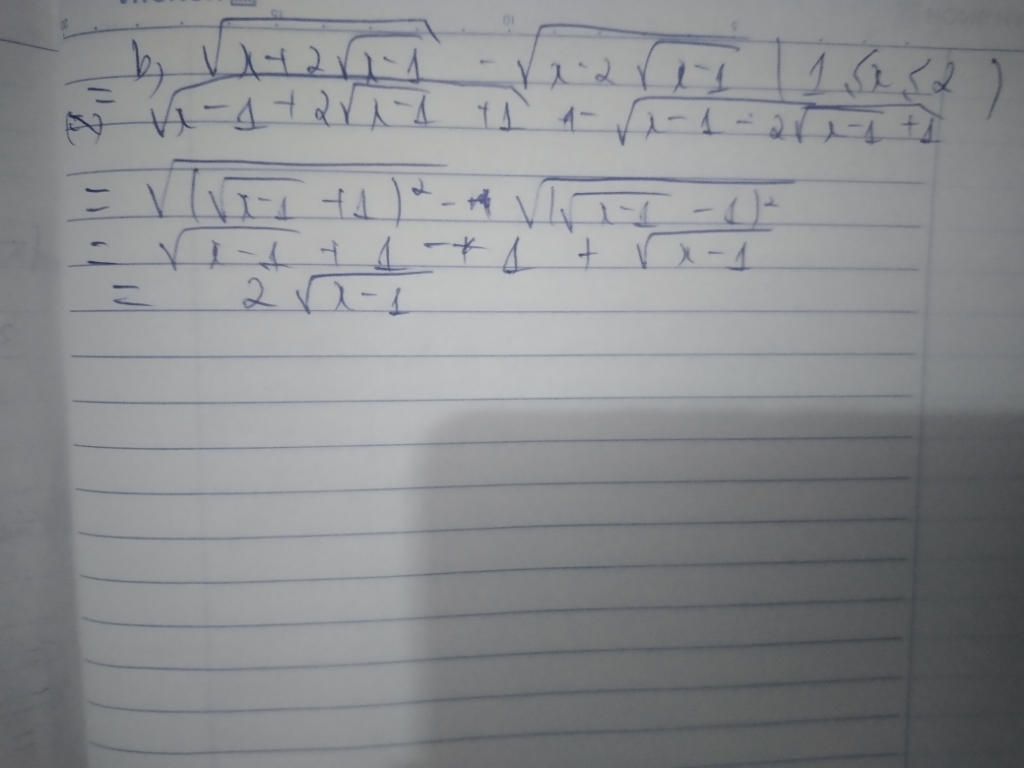 b, √(x+2√(x-1)) - √(x-2√(x-1)) (1 ≤ x ≤ 2)
= √(x-1+2√(x-1)+1) - √(x-1-2√(x-1)+1)
= √((√(x-1)+1)²) - √((√(x-1)-1)²)
= √(x-1) + 1 - 1 + √(x-1)
= 2√(x-1)